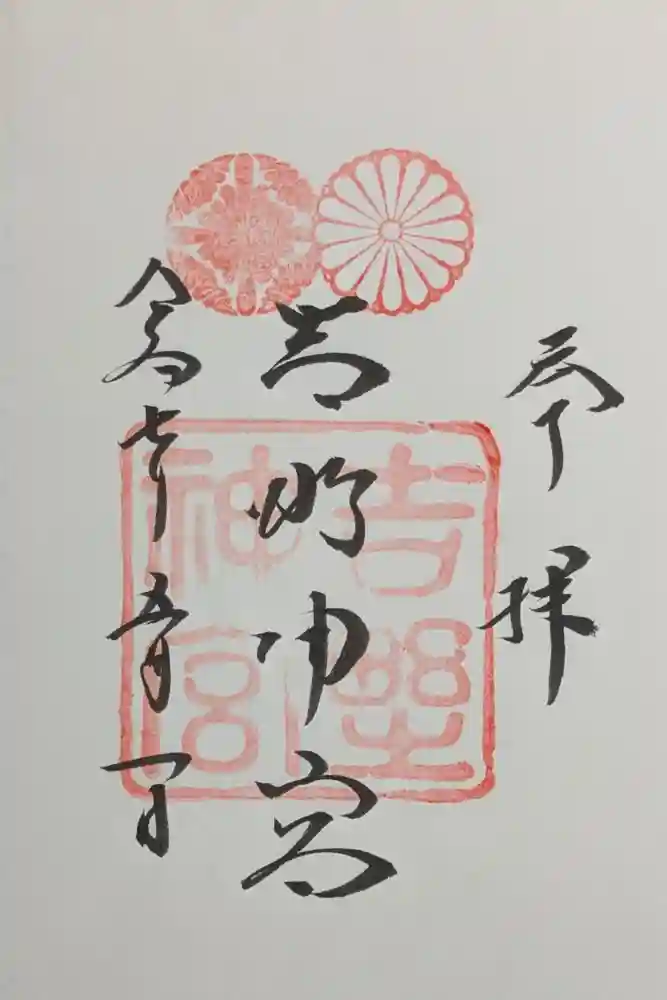 奉拝
吉野神宮
令和七年五月一日
吉野神宮